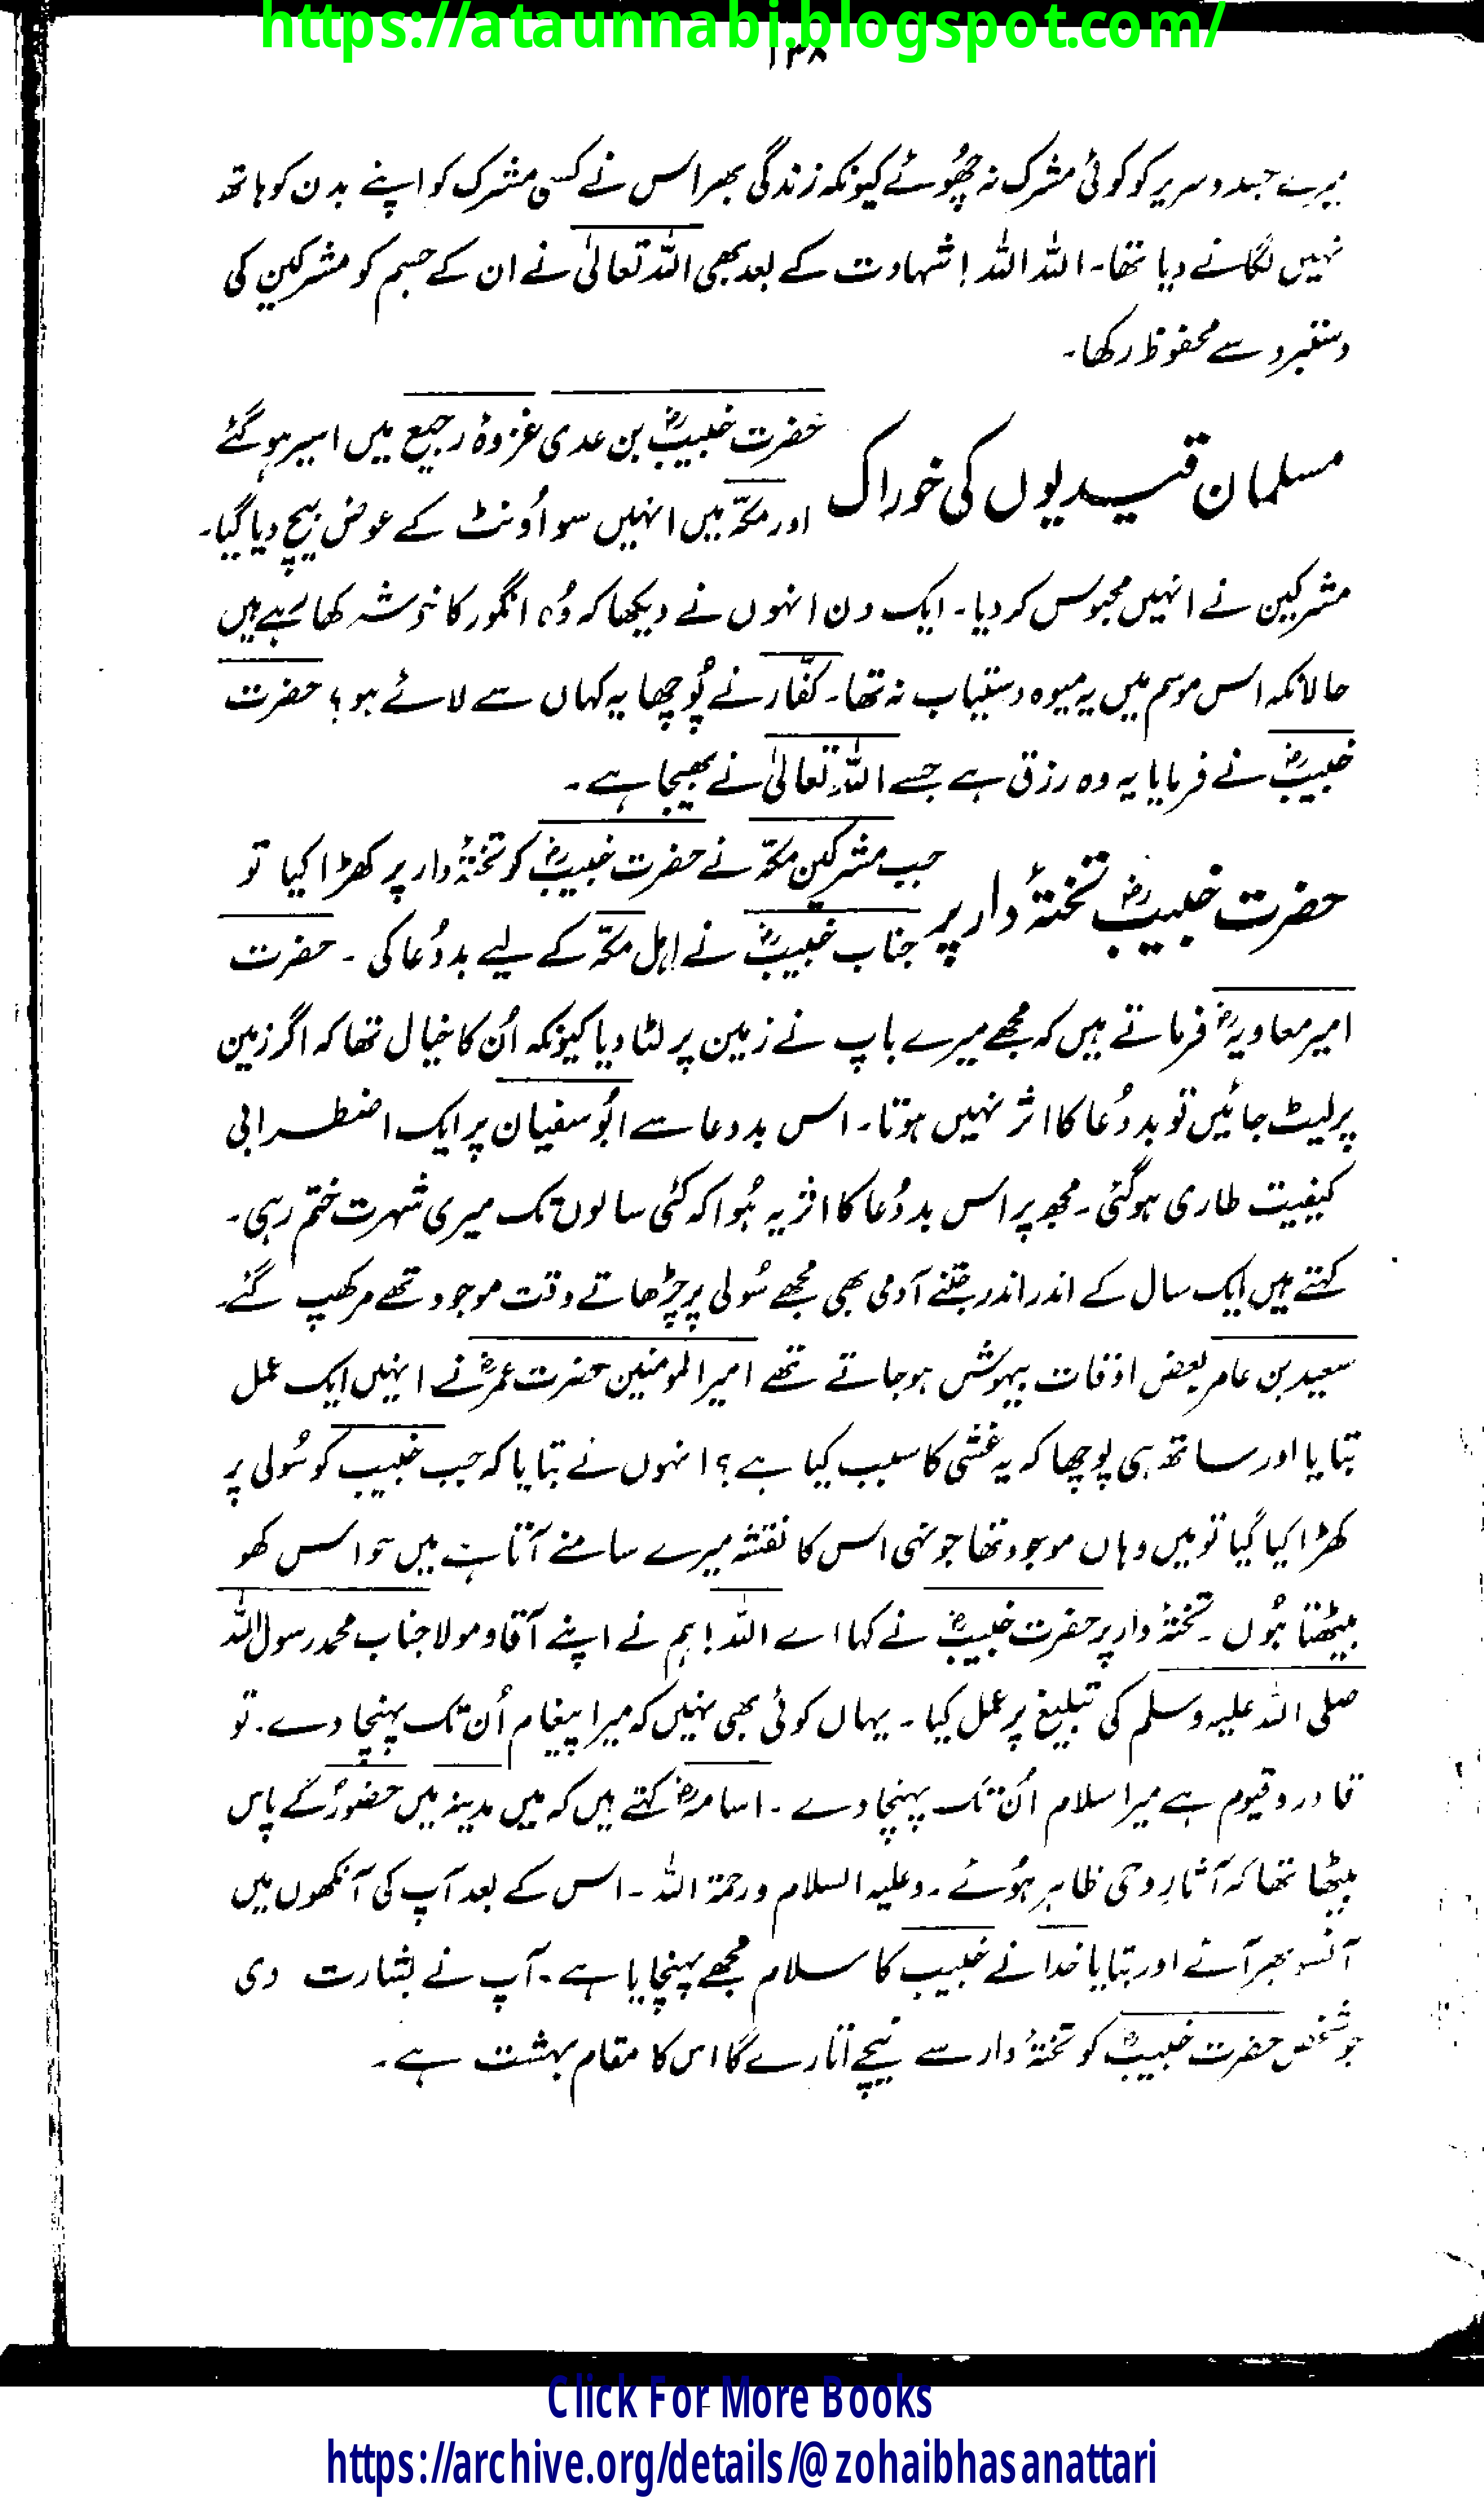 https://ataunnabi.blogspot.com/
۱۳۸
میرے جسد و سریر کو کوئی مشرک نہ چھُوئے کیونکہ زندگی بھر اس نے کسی مشرک کو اپنے بدن کو ہاتھ
نہیں لگانے دیا تھا۔ اللہ اللہ! شہادت کے بعد بھی اللہ تعالیٰ نے ان کے جسم کو مشرکین کی
دستبرد سے محفوظ رکھا۔
مسلمان قیدیوں کی خوراک
حضرت خبیبؓ بن عدی غزوۂ رجیع میں اسیر ہو گئے
اور مکّہ میں انہیں سو اُونٹ کے عوض بیچ دیا گیا۔
مشرکین نے انہیں محبوس کر دیا۔ ایک دن انہوں نے دیکھا کہ وُہ انگور کا خوشہ کھا رہے ہیں
حالانکہ اس موسم میں یہ میوہ دستیاب نہ تھا۔ کفّار نے پُوچھا یہ کہاں سے لائے ہو؟ حضرت
خبیبؓ نے فرمایا یہ وہ رزق ہے جسے اللہ تعالیٰ نے بھیجا ہے۔
حضرت خبیبؓ تختۂ دار پر
جب مشرکین مکّہ نے حضرت خبیبؓ کو تختۂ دار پر کھڑا کیا تو
جناب خبیبؓ نے اہل مکّہ کے لیے بددُعا کی۔ حضرت
امیر معاویہؓ فرماتے ہیں کہ مجھے میرے باپ نے زمین پر لٹا دیا کیونکہ اُن کا خیال تھا کہ اگر زمین
پر لیٹ جائیں تو بددُعا کا اثر نہیں ہوتا۔ اس بددعا سے ابُوسفیان پر ایک اضطرابی
کیفیت طاری ہو گئی۔ مجھ پر اس بددُعا کا اثر یہ ہُوا کہ کئی سالوں تک میری شہرت ختم رہی۔
کہتے ہیں ایک سال کے اندر اندر جتنے آدمی بھی مجھے سُولی پر چڑھاتے وقت موجود تھے مرکھپ گئے۔
سعید بن عامر بعض اوقات بیہوش ہو جاتے تھے امیر المومنین حضرت عمرؓ نے انہیں ایک عمل
بتایا اور ساتھ ہی پوچھا کہ یہ غشی کا سبب کیا ہے؟ انہوں نے بتایا کہ جب خبیب کو سُولی پر
کھڑا کیا گیا تو میں وہاں موجود تھا جونہی اس کا نقشہ میرے سامنے آتا ہے میں حواس کھو
بیٹھتا ہُوں۔ تختۂ دار پر حضرت خبیبؓ نے کہا اے اللہ! ہم نے اپنے آقا و مولا جناب محمد رسول اللہ
صلی اللہ علیہ وسلم کی تبلیغ پر عمل کیا۔ یہاں کوئی بھی نہیں کہ میرا پیغام اُن تک پہنچا دے۔ تو
قادر و قیوم ہے میرا سلام اُن تک پہنچا دے۔ اسامہؓ کہتے ہیں کہ میں مدینہ میں حضورؐ کے پاس
بیٹھا تھا کہ آثارِ وحی ظاہر ہُوئے۔ وعلیہ السلام ورحمۃ اللہ۔ اس کے بعد آپ کی آنکھوں میں
آنسو بھر آئے اور بتایا خدا نے خبیب کا سلام مجھے پہنچایا ہے۔ آپ نے بشارت دی
جو شخص حضرت خبیبؓ کو تختۂ دار سے نیچے اتارے گا اس کا مقام بہشت ہے۔
Click For More Books
https://archive.org/details/@zohaibhasanattari